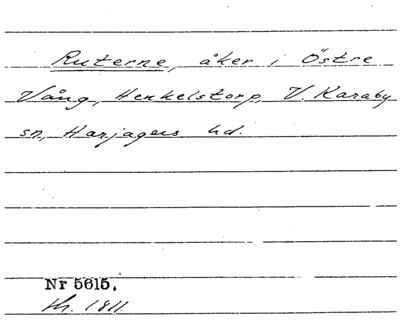 Ruterne, åker i Östre
Vång, Henkelstorp, V. Karaby
sn, Harjagers hd.
Nr 5615.
1811.